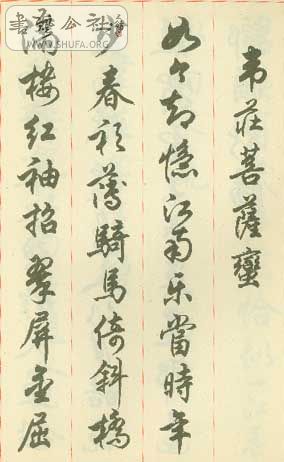 韦莊菩薩蠻
如今却憶江南乐當時年
少春衫薄騎馬倚斜橋
滿樓紅袖招翠屏金屈
書法公社
www.SHUFA.ORG